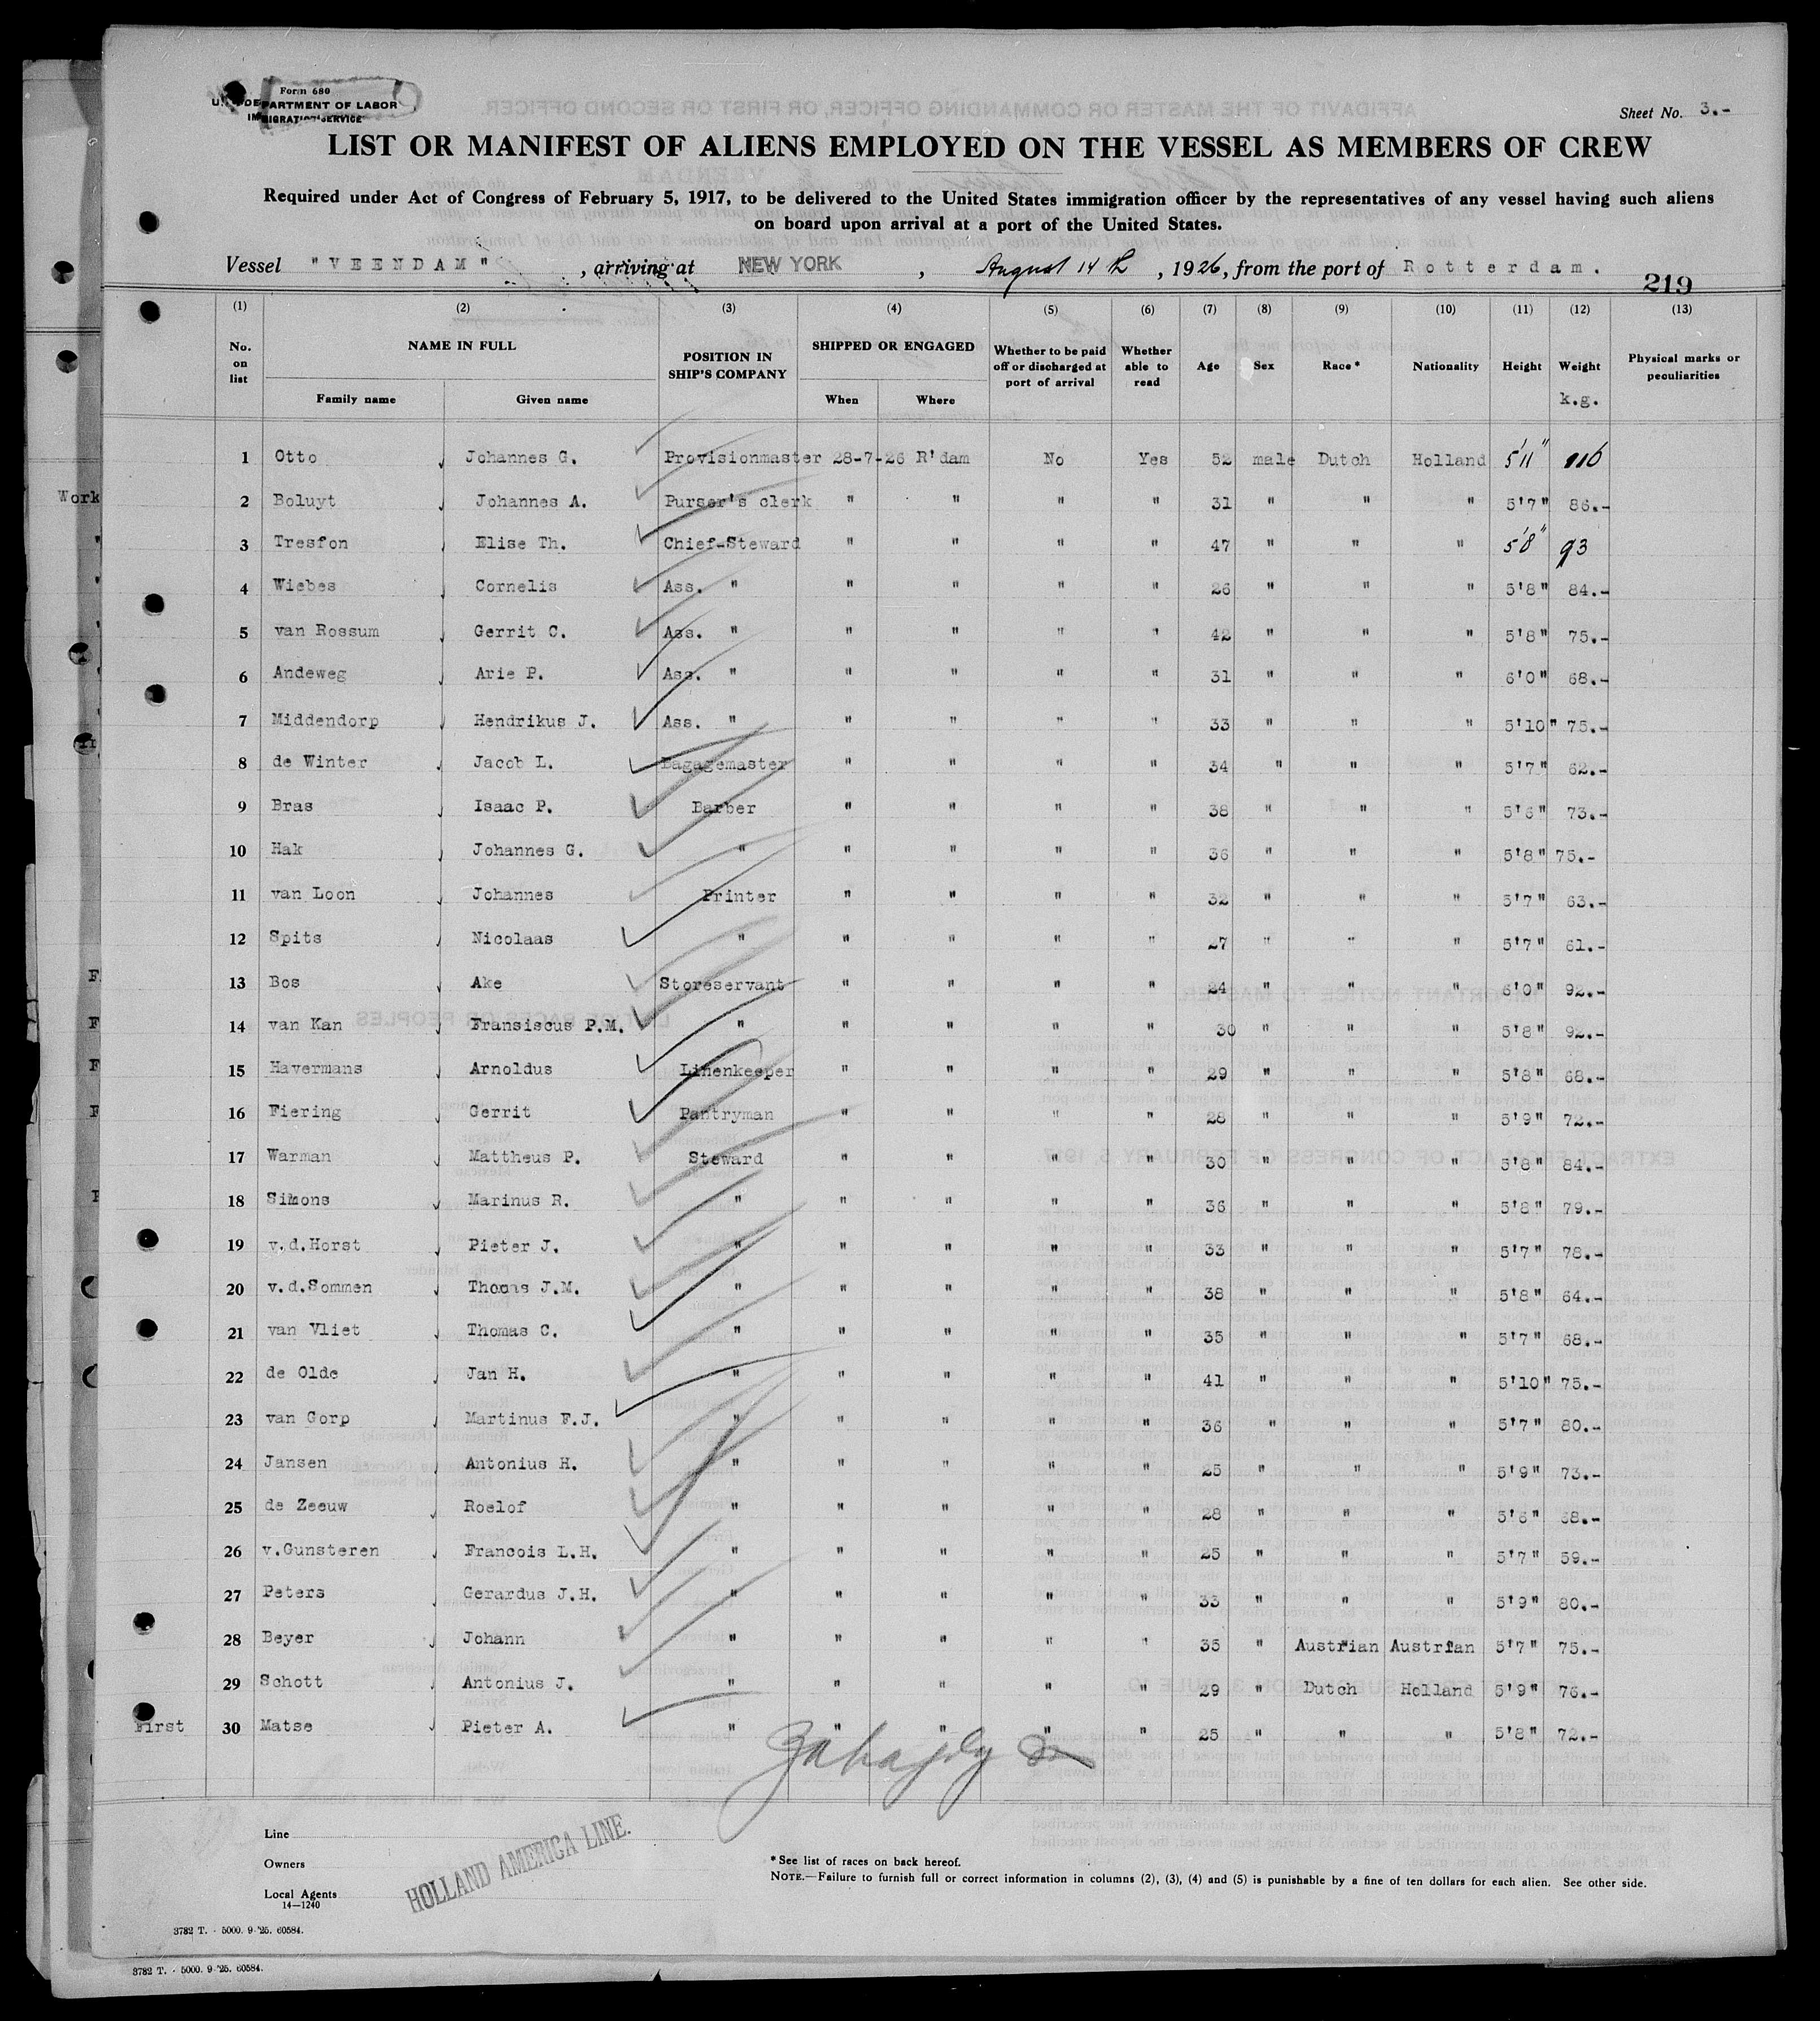 Form 680
U. S. DEPARTMENT OF LABOR
IMMIGRATION SERVICE
Sheet No. 3.-
LIST OR MANIFEST OF ALIENS EMPLOYED ON THE VESSEL AS MEMBERS OF CREW
Required under Act of Congress of February 5, 1917, to be delivered to the United States immigration officer by the representatives of any vessel having such aliens
on board upon arrival at a port of the United States.
Vessel "VEENDAM", arriving at NEW YORK, August 14th, 1926, from the port of Rotterdam.
219
(1) (2) (3) (4) (5) (6) (7) (8) (9) (10) (11) (12) (13)
No. on list NAME IN FULL POSITION IN SHIP'S COMPANY SHIPPED OR ENGAGED Whether to be paid off or discharged at port of arrival Whether able to read Age Sex Race* Nationality Height Weight Physical marks or peculiarities
Family name Given name When Where k.g.
1 Otto Johannes G. Provisionmaster 28-7-26 R'dam No Yes 52 male Dutch Holland 5'11" 116
2 Boluyt Johannes A. Purser's clerk " " " " 31 " " " 5'7" 86.-
3 Tresfon Elise Th. Chief-Steward " " " " 47 " " " 5'8" 93
4 Wiebes Cornelis Ass. " " " " " 26 " " " 5'8" 84.-
5 van Rossum Gerrit C. Ass. " " " " " 42 " " " 5'8" 75.-
6 Andeweg Arie P. Ass. " " " " " 31 " " " 6'0" 68.-
7 Middendorp Hendrikus J. Ass. " " " " " 33 " " " 5'10" 75.-
8 de Winter Jacob L. Bagagemaster " " " " 34 " " " 5'7" 62.-
9 Bras Isaac P. Barber " " " " 38 " " " 5'6" 73.-
10 Hak Johannes G. " " " " " 36 " " " 5'8" 75.-
11 van Loon Johannes Printer " " " " 32 " " " 5'7" 63.-
12 Spits Nicolaas " " " " " 27 " " " 5'7" 61.-
13 Bos Ake Storeservant " " " " 24 " " " 6'0" 92.-
14 van Kan Fransiscus P.M. " " " " " 30 " " " 5'8" 92.-
15 Havermans Arnoldus Linenkeeper " " " " 29 " " " 5'8" 68.-
16 Fiering Gerrit Pantryman " " " " 28 " " " 5'9" 72.-
17 Warman Mattheus P. Steward " " " " 30 " " " 5'8" 84.-
18 Simons Marinus R. " " " " " 36 " " " 5'8" 79.-
19 v.d.Horst Pieter J. " " " " " 33 " " " 5'7" 78.-
20 v.d.Sommen Thomas J.M. " " " " " 38 " " " 5'8" 64.-
21 van Vliet Thomas C. " " " " " 35 " " " 5'7" 68.-
22 de Olde Jan H. " " " " " 41 " " " 5'10" 75.-
23 van Gorp Martinus F.J. " " " " " 36 " " " 5'7" 80.-
24 Jansen Antonius H. " " " " " 25 " " " 5'9" 73.-
25 de Zeeuw Roelof " " " " " 28 " " " 5'6" 68.-
26 v.Gunsteren Francois L.H. " " " " " 25 " " " 5'7" 59.-
27 Peters Gerardus J.H. " " " " " 33 " " " 5'9" 80.-
28 Beyer Johann " " " " " 35 " Austrian Austrian 5'7" 75.-
29 Schott Antonius J. " " " " " 29 " Dutch Holland 5'9" 76.-
30 Matse Pieter A. " " " " " 25 " " " 5'8" 72.-
Work
First
Line
Owners
Local Agents
14—1240
HOLLAND AMERICA LINE.
*See list of races on back hereof.
NOTE.—Failure to furnish full or correct information in columns (2), (3), (4) and (5) is punishable by a fine of ten dollars for each alien. See other side.
3782 T. - 5000. 9-'25. 60584.
3782 T. - 5000. 9-'25. 60584.